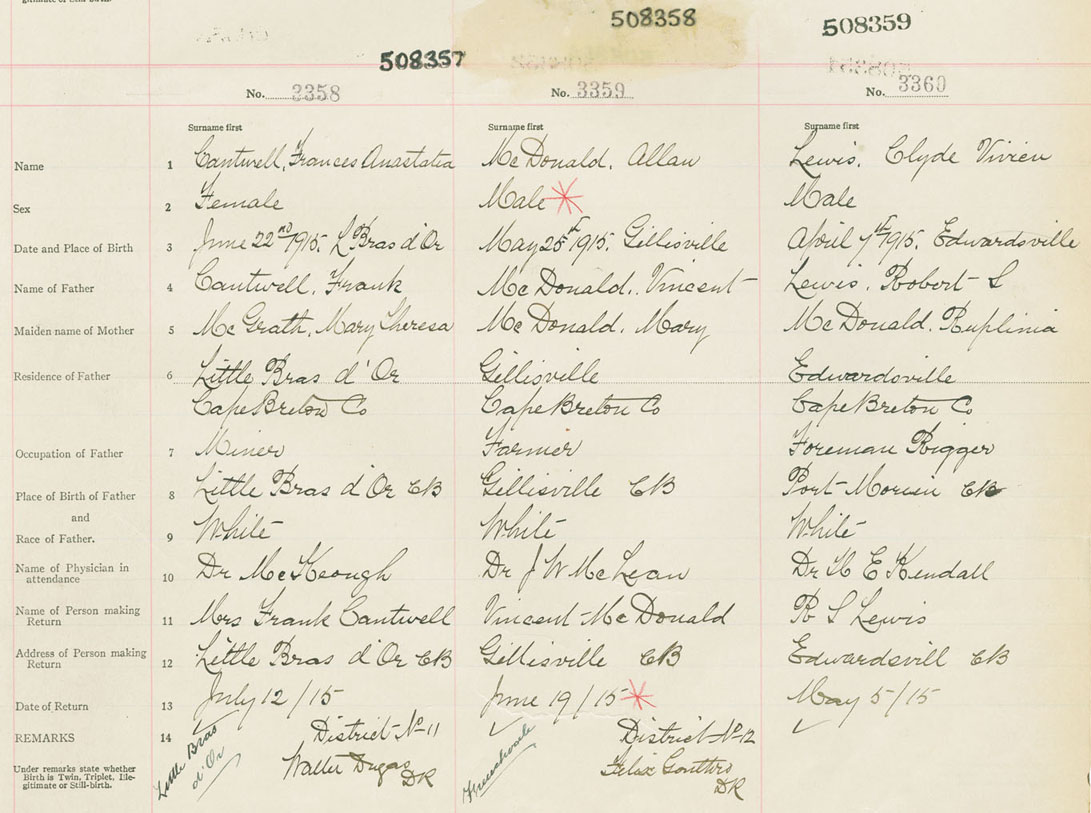 gitimate or Still-birth.
508357
508358
508359
No. 3358
No. 3359
No. 3360
Surname first
Surname first
Surname first
Name 1 Cantwell, Frances Anastatia McDonald, Allan Lewis, Clyde Vivien
Sex 2 Female Male Male
Date and Place of Birth 3 June 22nd 1915. L Bras d'Or May 25th 1915. Gillisville April 7th 1915. Edwardsville
Name of Father 4 Cantwell, Frank McDonald, Vincent Lewis, Robert S
Maiden name of Mother 5 McGrath, Mary Theresa McDonald, Mary McDonald, Ruplinia
Residence of Father 6 Little Bras d'Or Gillisville Edwardsville
Cape Breton Co Cape Breton Co Cape Breton Co
Occupation of Father 7 Miner Farmer Foreman Rigger
Place of Birth of Father 8 Little Bras d'Or CB Gillisville CB Port Morien CB
and
Race of Father. 9 White White White
Name of Physician in
attendance 10 Dr McKeough Dr J W McLean Dr H E Kendall
Name of Person making
Return 11 Mrs Frank Cantwell Vincent McDonald R S Lewis
Address of Person making
Return 12 Little Bras d'Or CB Gillisville CB Edwardsvill CB
Date of Return 13 July 12/15 June 19/15 May 5/15
REMARKS 14 District No 11 District No 12
Little Bras
d'Or
Under remarks state whether
Birth is Twin, Triplet, Ille-
gitimate or Still-birth.
Walter Dugas
DR
Felix Gouthro
DR